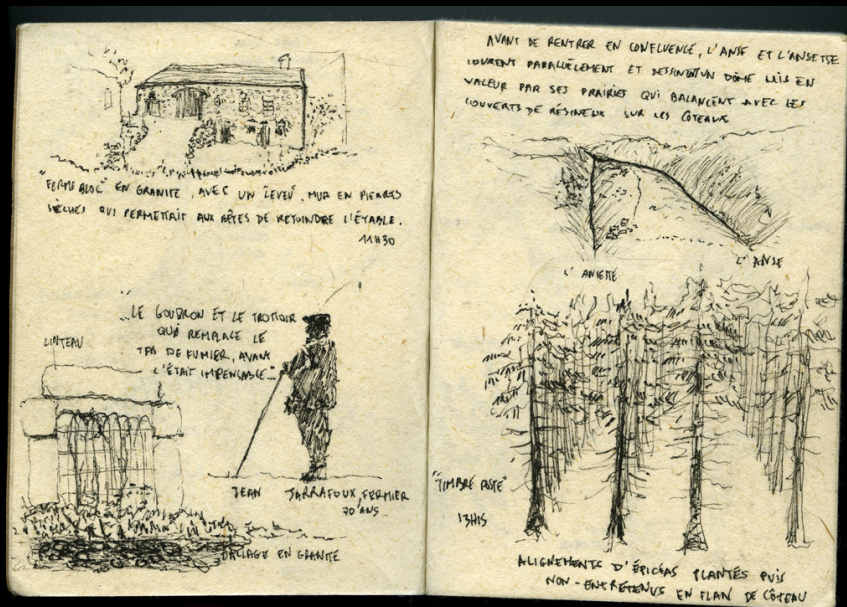 "FERME BLOC" EN GRANITE, AVEC UN LEVEU. MUR EN PIERRES
SÈCHES QUI PERMETTAIT AUX BÊTES DE REJOINDRE L'ÉTABLE.
11H30
...LE GOUDRON ET LE TROTTOIR
QUI REMPLACE LE
TAS DE FUMIER, AVANT
C'ÉTAIT IMPENSABLE..."
LINTEAU
JEAN JARRAFOUX, FERMIER
70 ANS
DALLAGE EN GRANITE
AVANT DE RENTRER EN CONFLUENCE, L'ANSE ET L'ANSETTE
COURENT PARALLÈLEMENT ET DESSINENT UN DÔME MIS EN
VALEUR PAR SES PRAIRIES QUI BALANCENT AVEC LES
COUVERTS DE RÉSINEUX SUR LES CÔTEAUX
L'ANSE
L'ANSETTE
"TIMBRE POSTE"
13H15
ALIGNEMENTS D'ÉPICÉAS PLANTÉS PUIS
NON-ENTRETENUS EN FLAN DE CÔTEAU